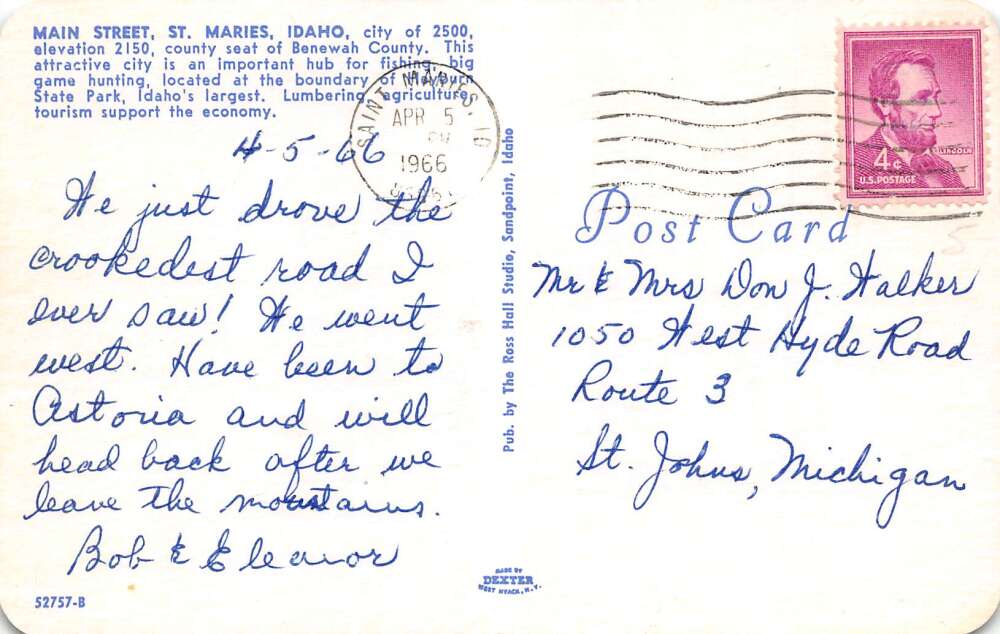 MAIN STREET, ST. MARIES, IDAHO, city of 2500,
elevation 2150, county seat of Benewah County. This
attractive city is an important hub for fishing, big
game hunting, located at the boundary of Heyburn
State Park, Idaho's largest. Lumbering, agriculture,
tourism support the economy.
SAINT MARIES, ID
APR 5
PM
1966
4-5-66
We just drove the
crookedest road I
ever saw! We went
west. Have been to
Astoria and will
head back after we
leave the mountains.
Bob & Eleanor
52757-B
Pub. by The Ross Hall Studio, Sandpoint, Idaho
MADE BY
DEXTER
WEST NYACK, N.Y.
LINCOLN
4¢
U.S. POSTAGE
Post Card
5
Mr & Mrs Don J. Walker
1050 West Hyde Road
Route 3
St. Johns, Michigan